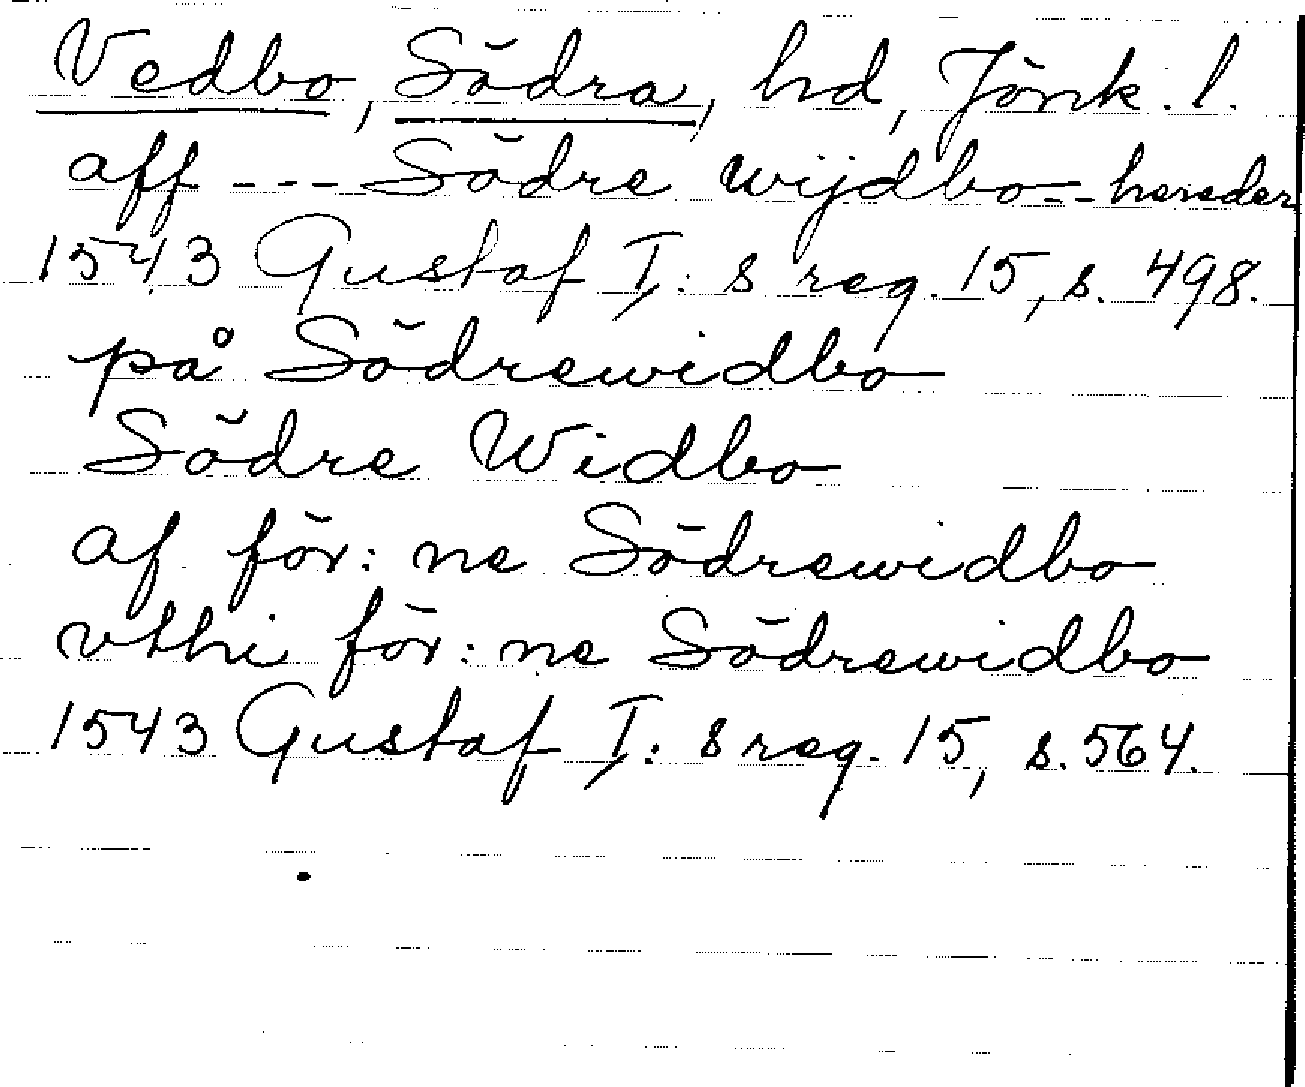 Vedbo, Södra, hd, Jönk. l.
aff --- Södre wijdbo -- hereder
1543 Gustaf I: s reg. 15, s. 498.
på Södrewidbo
Södre Widbo
af för: ne Södrewidbo
vthi för: ne Södrewidbo
1543 Gustaf I: s reg. 15, s. 564.